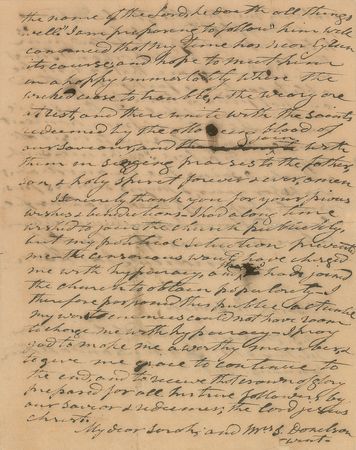 the name of the Lord, he doth all things
well" I am preparing to follow him well
convinced that my time has near
its course, and hope to meet him
in a happy immortality where the
wicked cease to trouble, the weary are
at rest, and there unite with the saints
redeemed by the blood of
our saviour, and join with
them in singing praises to the father,
son, & holy spirit forever & ever, amen
I sincerely thank you for your pious
wishes & benedictions I had a long time
wished to join the church publickly,
but my political situation prevented
me the censorious would have charged
me with hypocracy, and that I had joined
the church to obtain popularity I
therefore postponed this publick act untill
my worst enemies could not have room
to charge me with hypocracy I pray
god to make me a worthy member &
to give me grace to continue to
the end, and to receive that crown of glory
prepared for all his true followers by
our savior & redeemer, the lord jesus
christ.
My dear Sarah; and Mrs S. Donelson
went